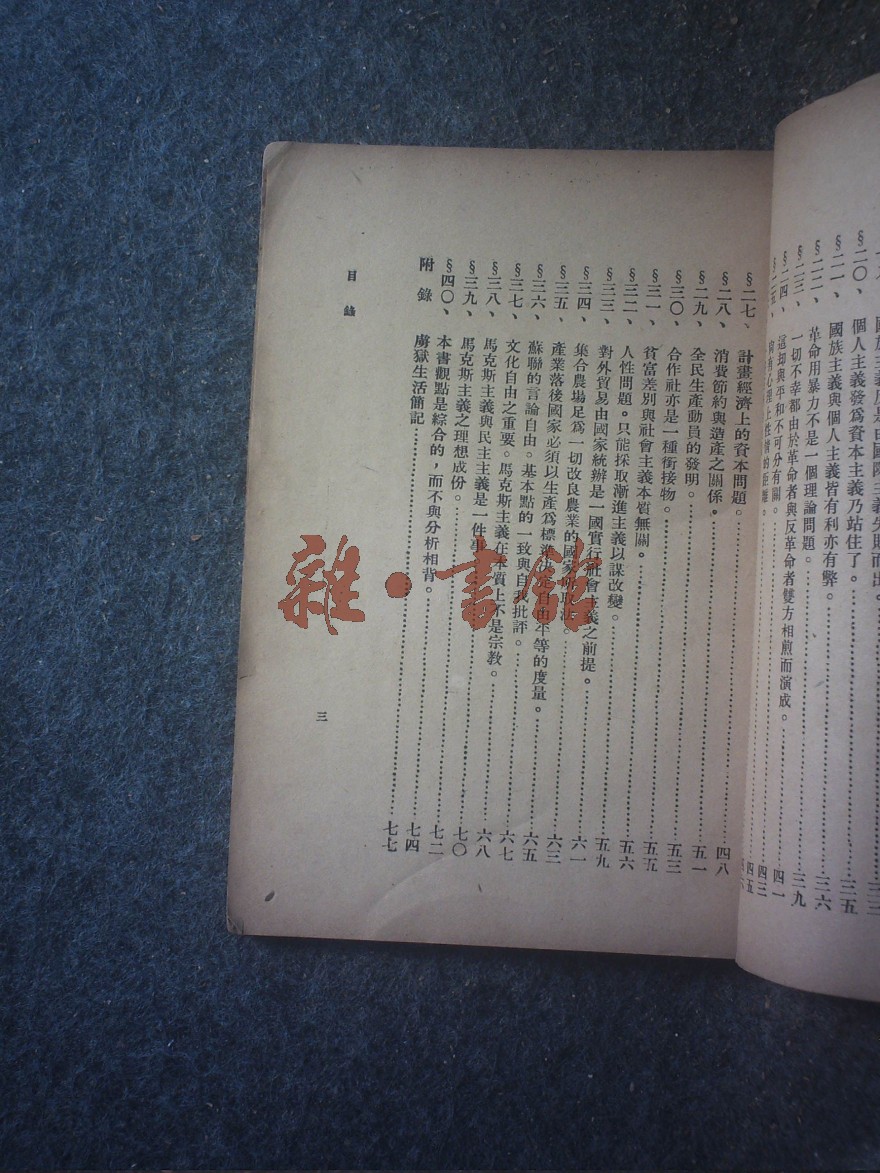 國族主義反是由國際主義失敗而出。
§二〇、個人主義發爲資本主義乃站住了。……三五
§二一、國族主義與個人主義皆有利亦有弊。……三六
§二二、革命用暴力不是一個理論問題。……三九
§二三、一切不幸都由於革命者與反革命者雙方相煎而演成。……四一
§二四、這却與平和不可分有關。……四三
§二五、心理上性情的距離。……四五
§二七、計畫經濟上的資本問題。……四八
§二八、消費節約與造產之關係。……五一
§二九、全民生產動員的發明。……五三
§三〇、合作社亦是一種銜接物。……五五
§三一、貧富差別與社會主義本質無關。……五六
§三二、人性問題。只能採取漸進主義以謀改變。……五九
§三三、對外貿易由國家統辦是一國實行社會主義之前提。……六一
§三四、集合農場足爲一切改良農業的國家所取法。……六三
§三五、產業落後國家必須以生產爲標準決定自由平等的度量。……六五
§三六、蘇聯的言論自由。基本點的一致與自我批評。……六七
§三七、文化自由之重要。馬克斯主義在本質上不是宗教。……六八
§三八、馬克斯主義與民主主義是一件事。……七〇
§三九、馬克斯主義之理想成份。……七二
§四〇、本書觀點是綜合的，而不與分析相背。……七四
附錄 虜獄生活簡記……七七
目錄
三
雜·書館